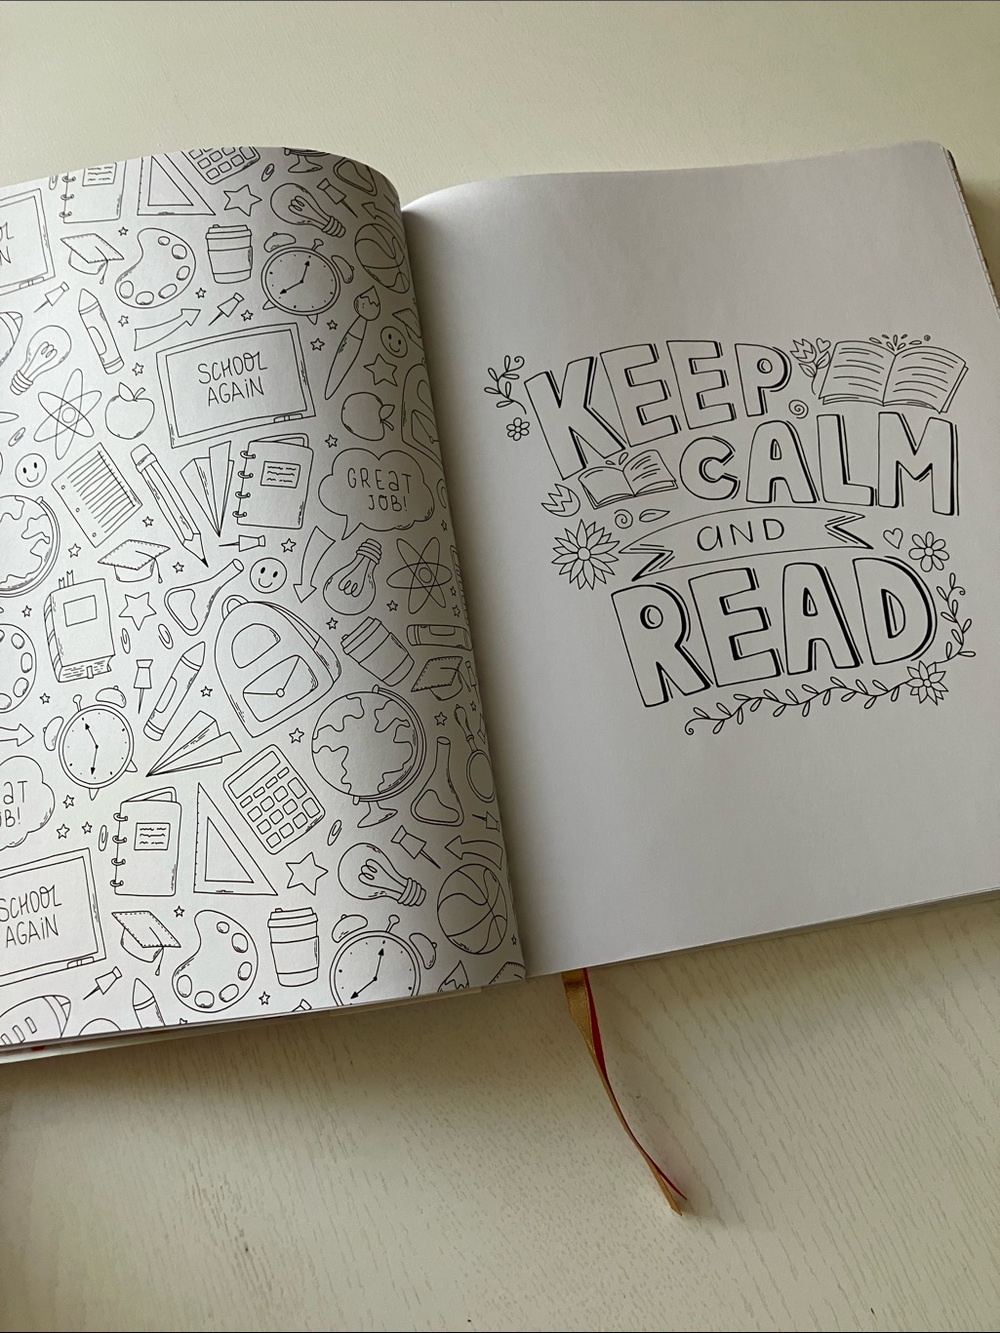 SCHOOL
AGAIN
GREAT
JOB!
SCHOOL
AGAIN
KEEP
CALM
AND
READ